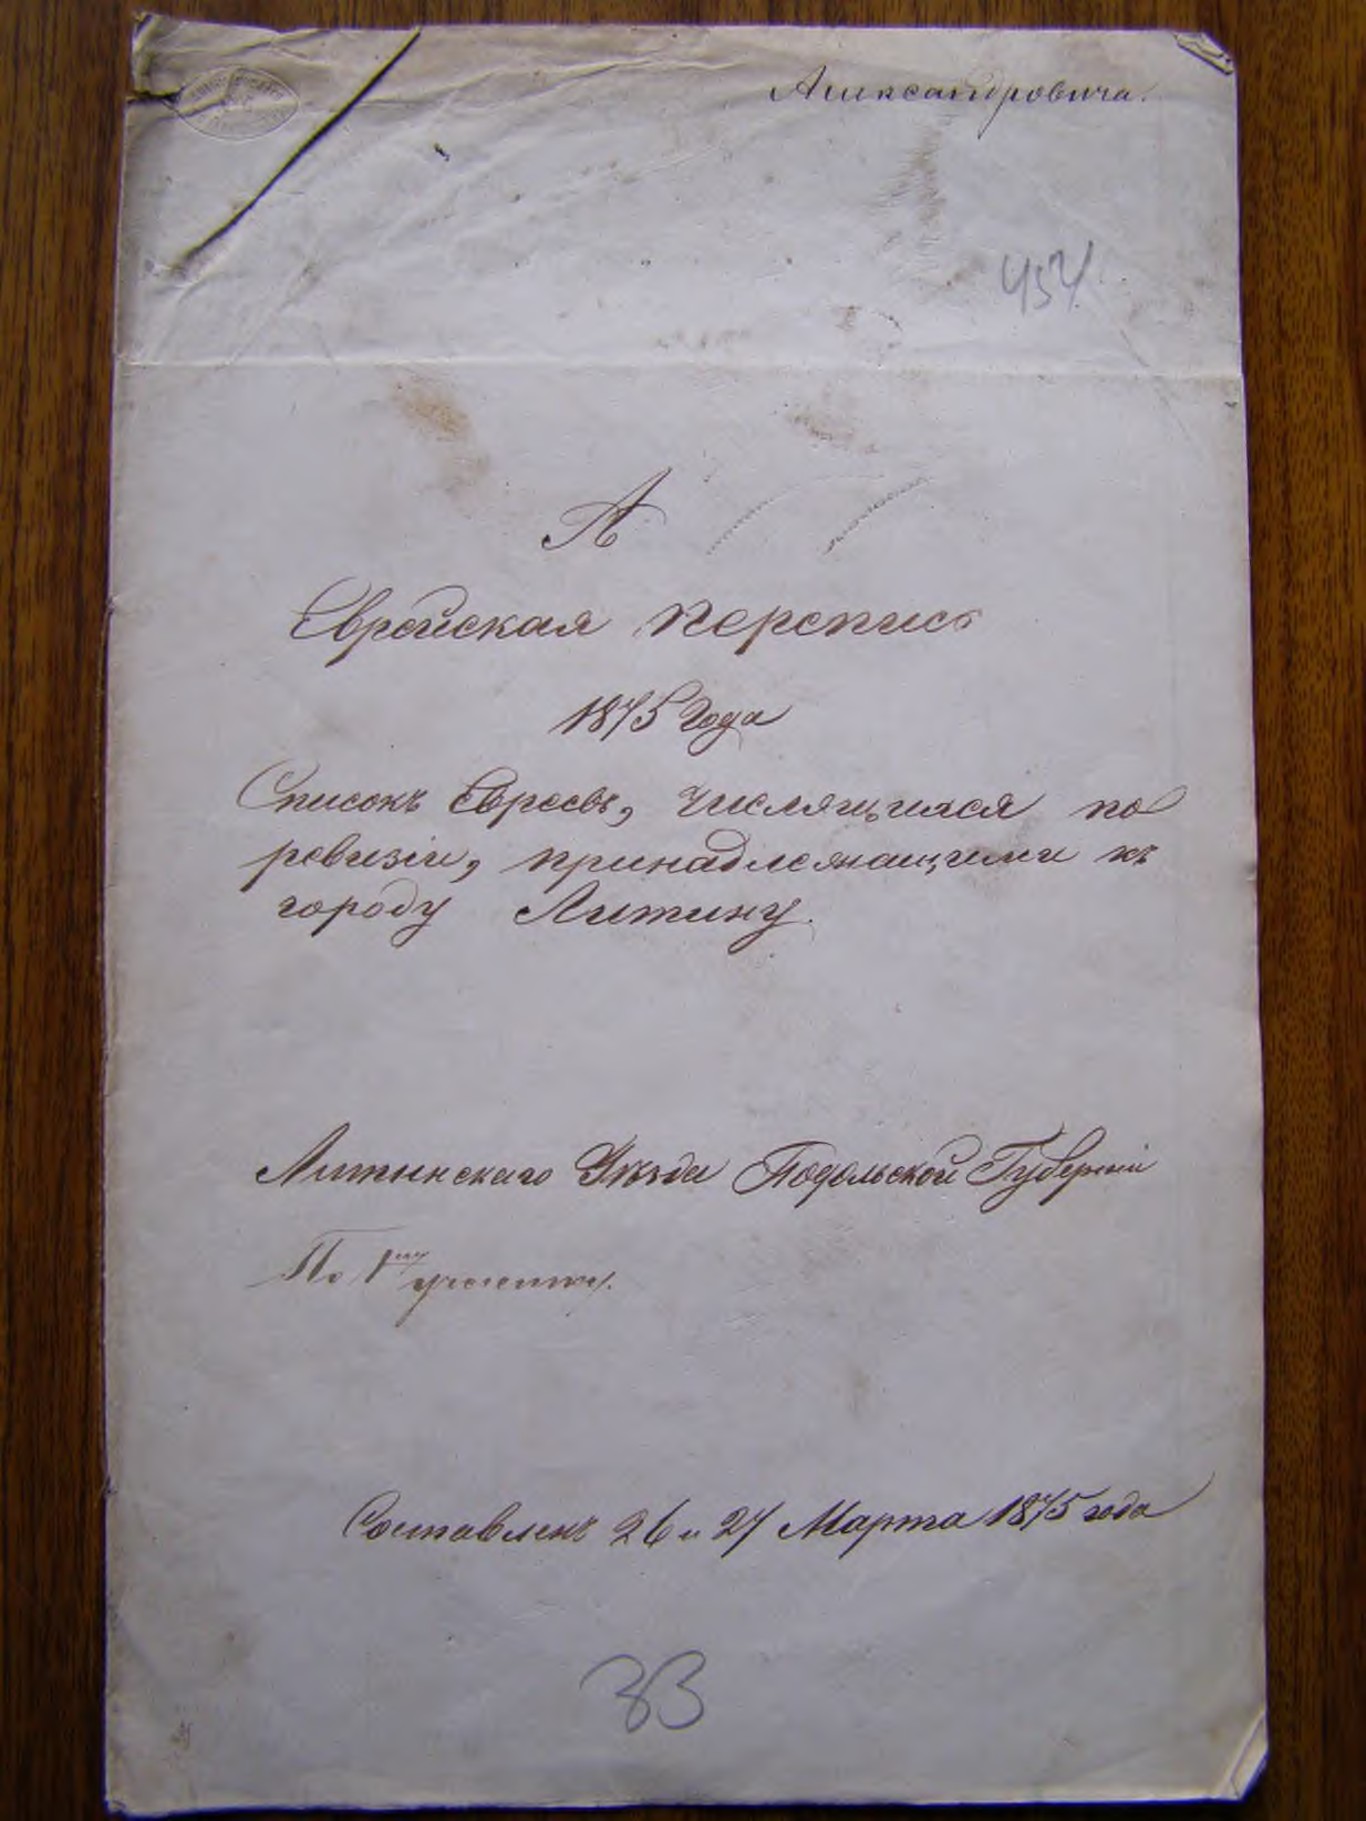 Александровича.
454.
А
Еврейская перепись
1875 года
Списокъ Евреевъ, числящихся по
ревизіи, принадлежащими къ
городу Литину.
Литинскаго Уѣзда Подольской Губерніи
По 1му участку.
Составленъ 26 и 27 Марта 1875 года
33